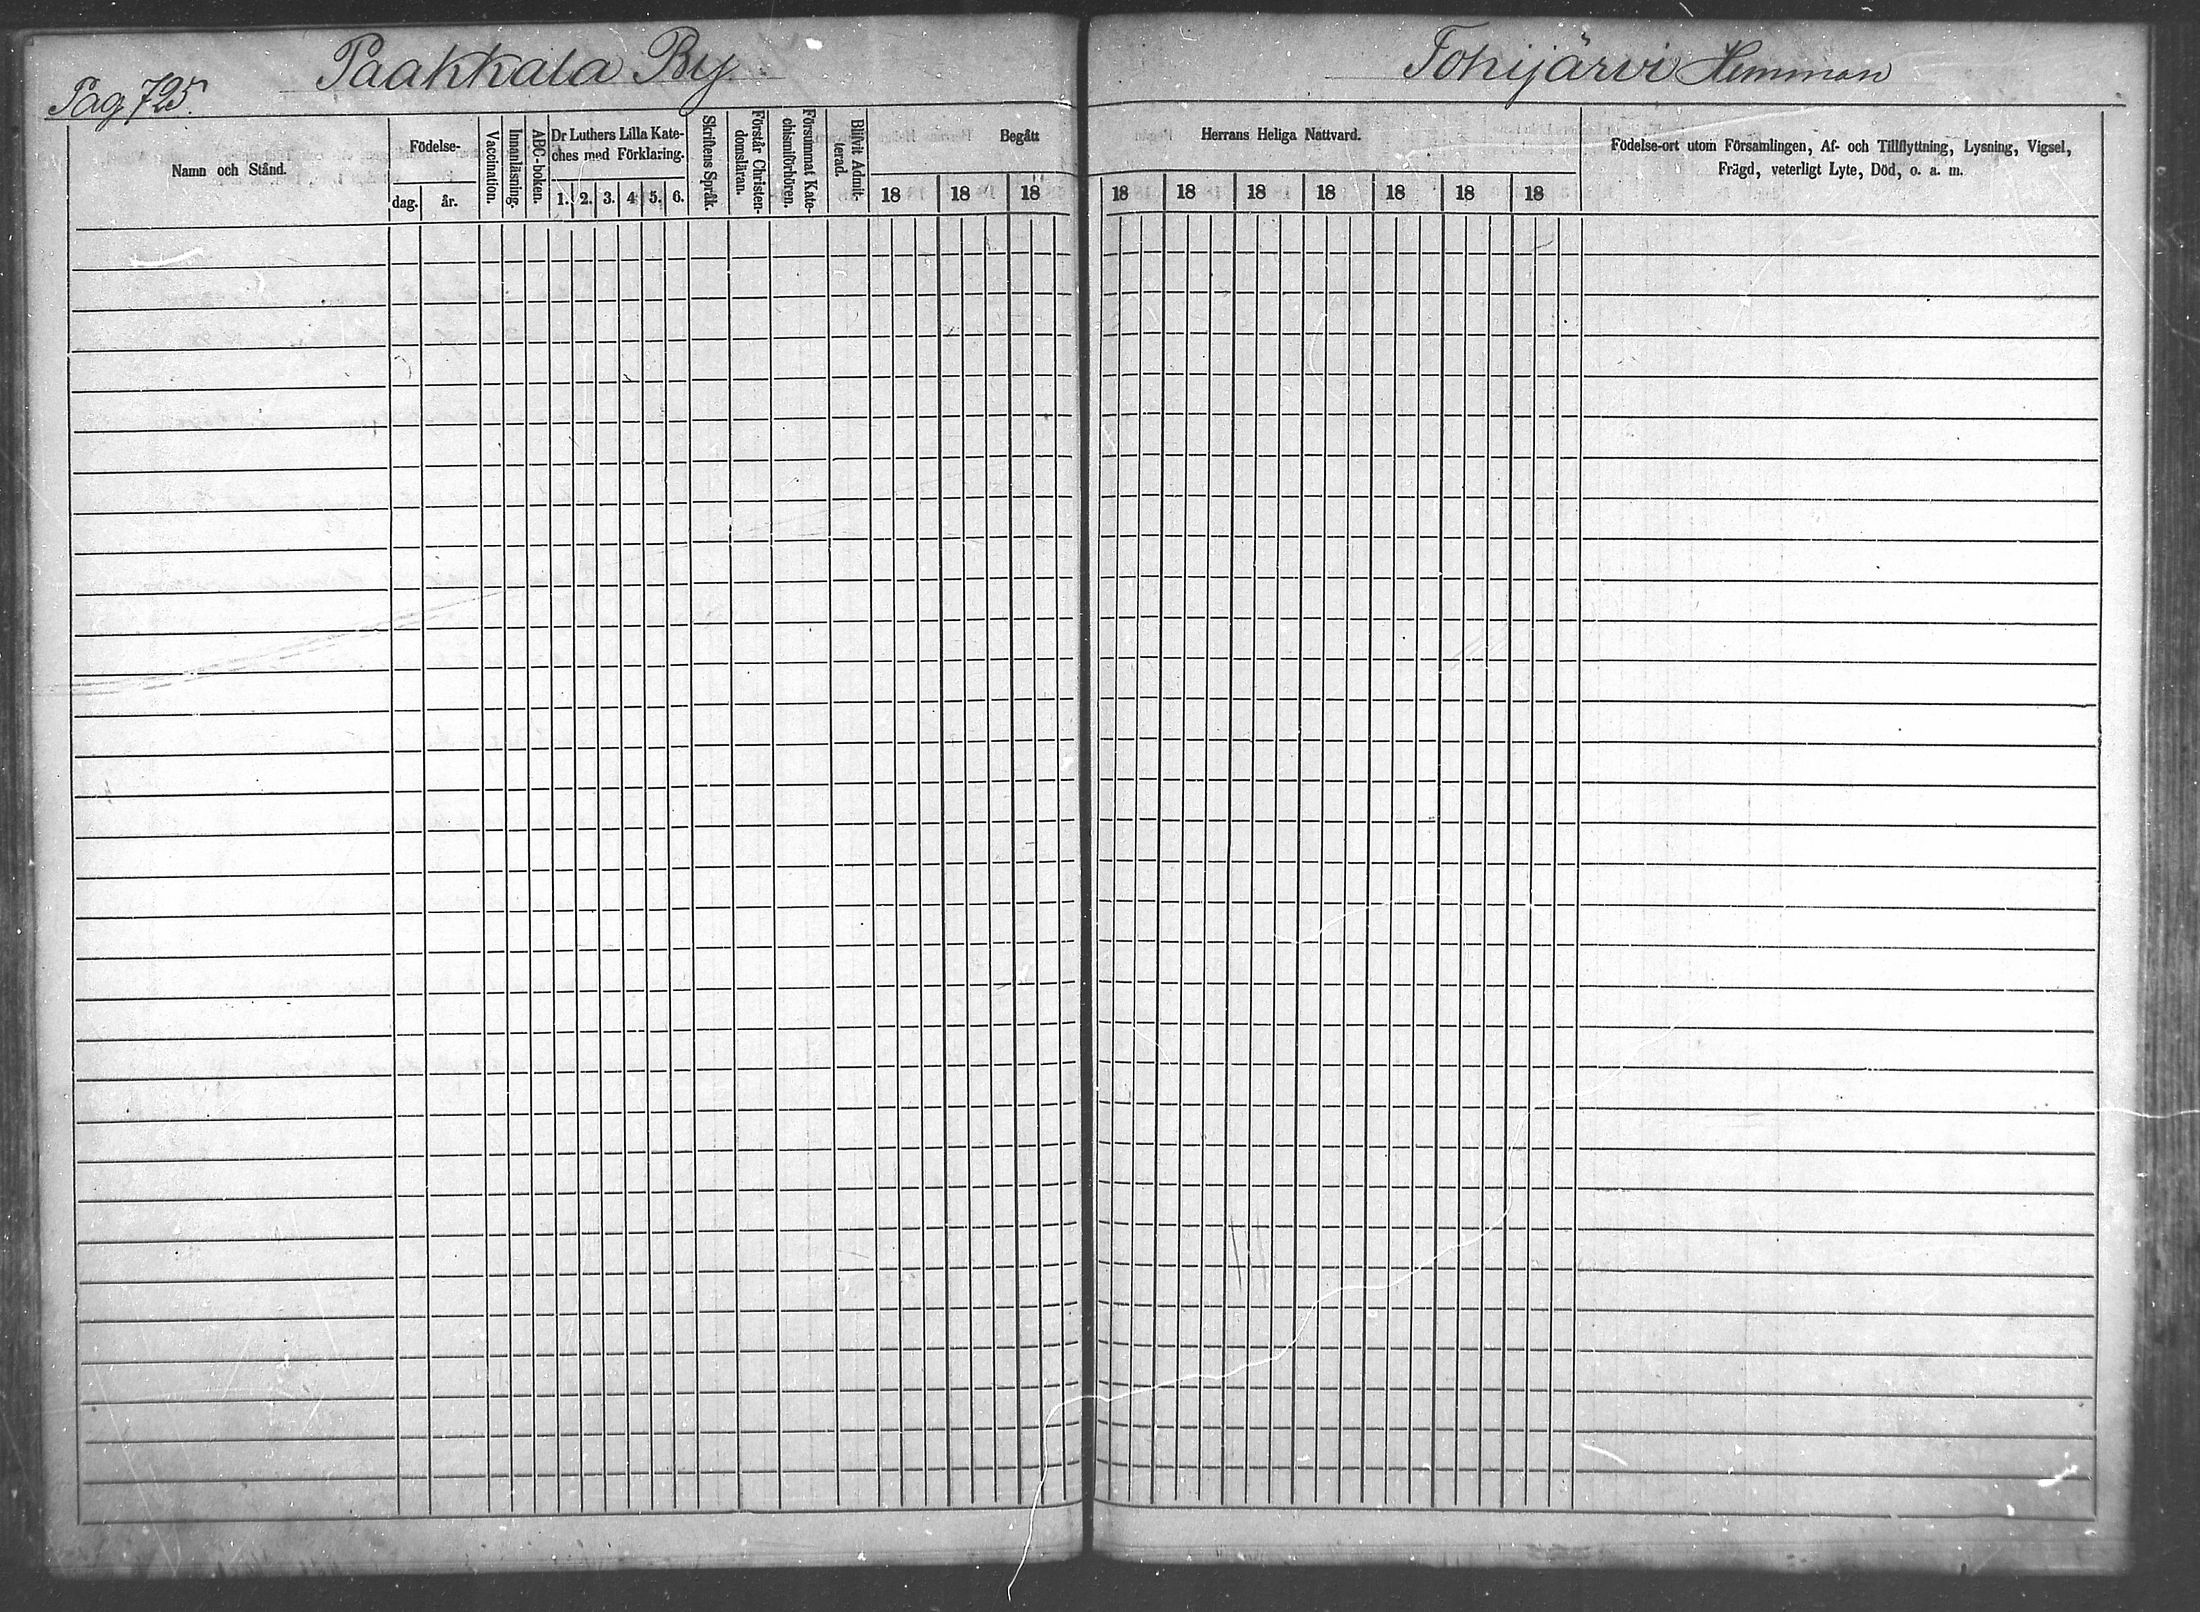 Pag 725.
Paakkala By.
Tohijärvi Hemman
Namn och Stånd.
Födelse-
dag.
år.
Vaccination.
Innanläsning.
ABC-boken.
Dr Luthers Lilla Kate-
ches med Förklaring.
1. 2. 3. 4 5. 6.
Skriftens Språk.
Förstår Christen-
domsläran.
Försummat Kate-
chismiförhören.
Blifvit Admit-
terad.
Begått
Herrans Heliga Nattvard.
18 18 18 18 18 18 18 18 18 18
Födelse-ort utom Församlingen, Af- och Tillflyttning, Lysning, Vigsel,
Frägd, veterligt Lyte, Död, o. a. m.